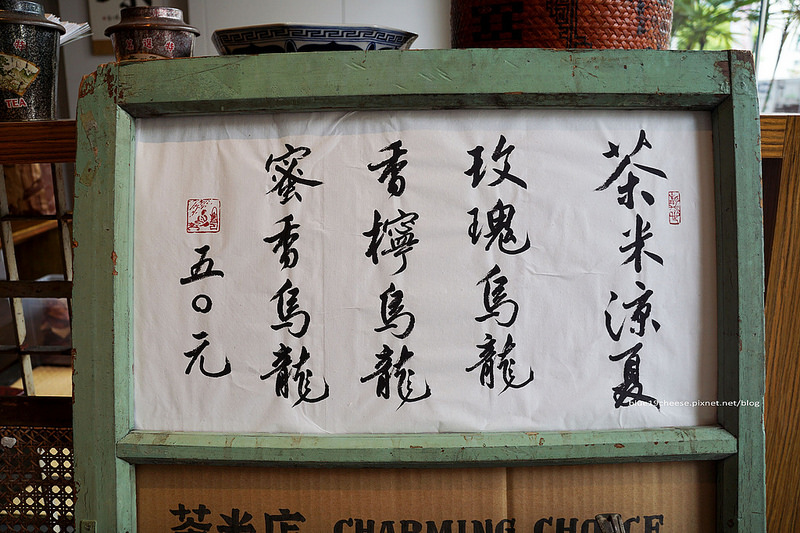 茶米涼夏
玫瑰烏龍
香檸烏龍
蜜香烏龍
五〇元
TEA
blue19cheese.pixnet.net/blog
茶米店 CHARMING CHOICE